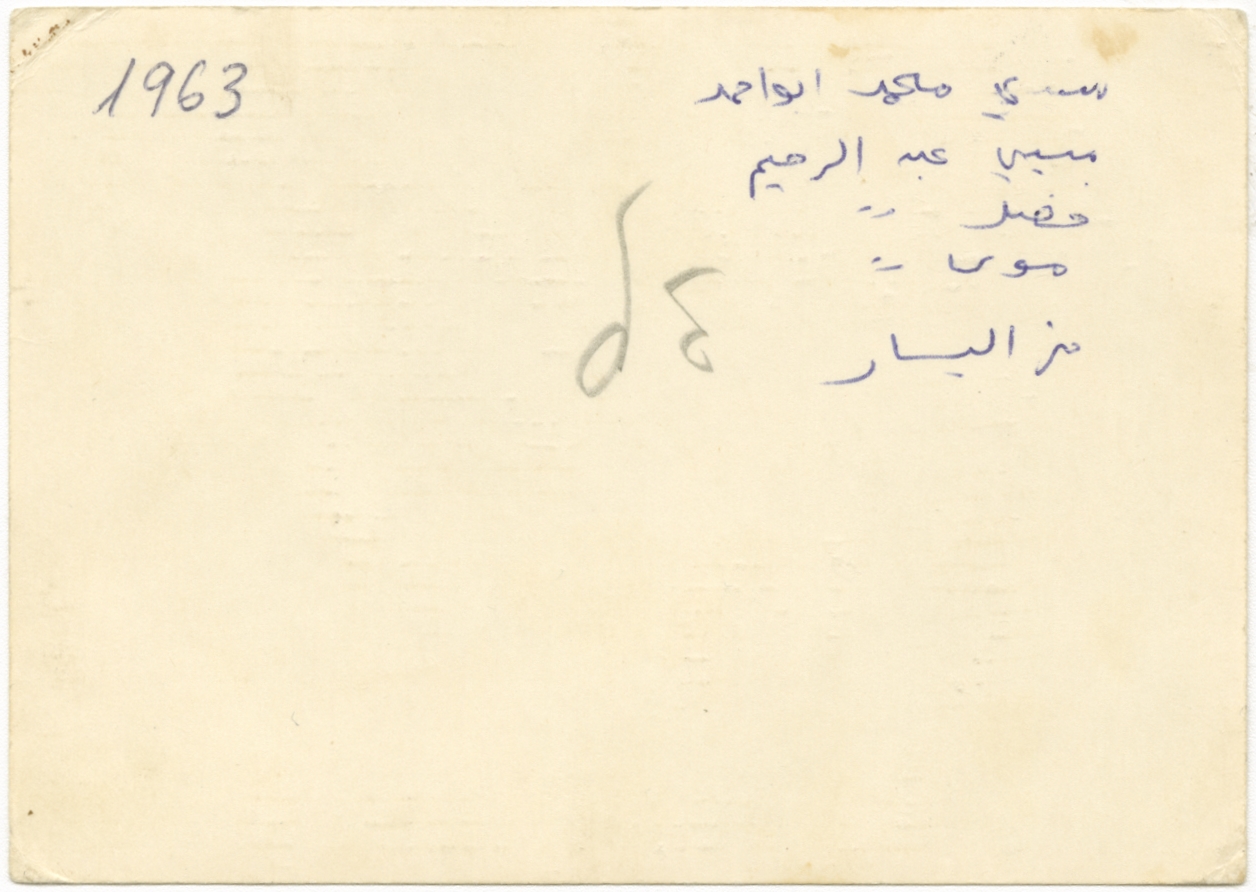 1963
سيدي محمد ابو احمد
سيدي عبد الرحيم
فضل 〃
موسى 〃
من اليسار